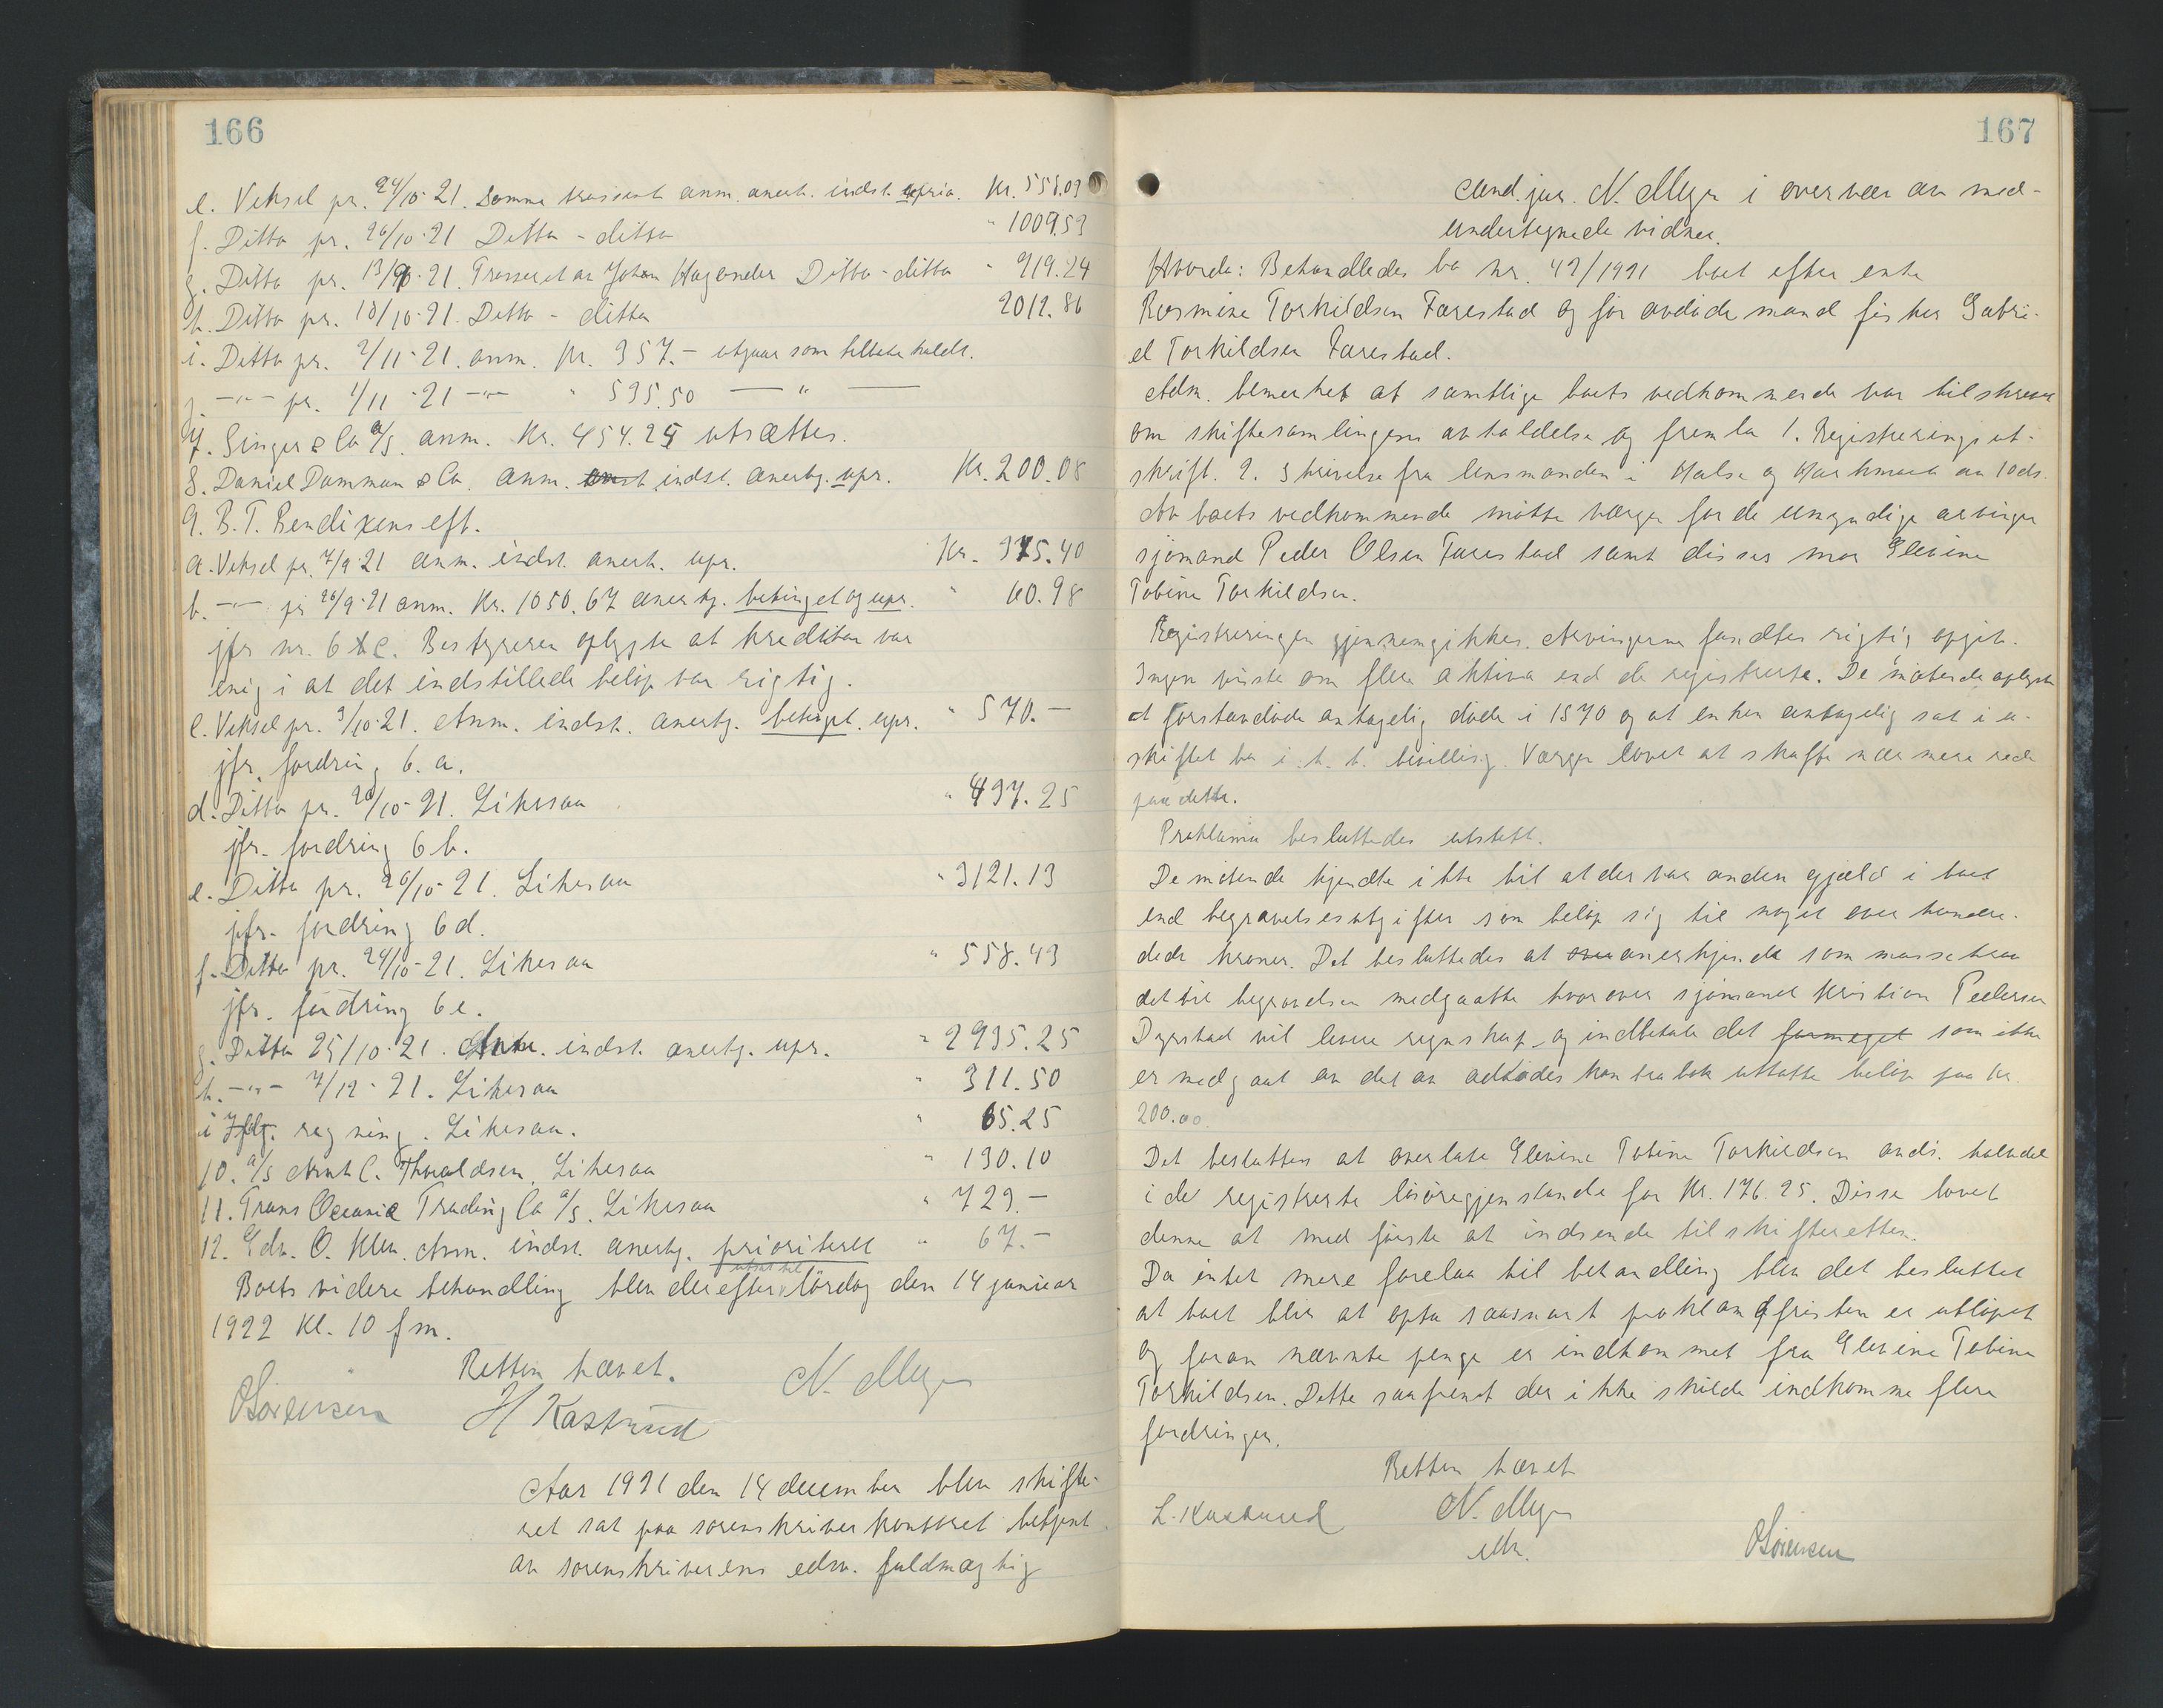 166
e. Veksel pr. 24/10-21. Samme trassent anm. anerk. indst. upria. Kr. 558.03
f. Ditto pr. 26/10-21 Ditto - ditto " 1009.53
g. Ditto pr. 13/9-21. Trasseret av Johan Hagander Ditto - ditto " 919.24
h. Ditto pr. 18/10-21. Ditto - ditto 2012.86
i. Ditto pr. 2/11-21. anm. Kr. 357.- utgaar som tilbakekaldt.
j. -"- pr. 1/11-21 -"- " 595.50 — " —
7. Singer & Co A/S. anm. Kr. 454.25 utsættes.
8. Daniel Damman & Co. anm. indst. anerkj. upr. Kr. 200.08
9. B. T. Bendixens eft.
a. Veksel pr. 7/9-21 anm. indst. anerk. upr. Kr. 975.40
b. -"- pr 26/9-21 anm. Kr. 1050.67 anerkj. betinget og upr. " 60.98
jfr nr. 6 c. Bestyreren oplyste at kreditor var
enig i at det indstillede beløp var rigtig.
c. Veksel pr. 3/10-21. Anm. indst. anerkj. betinget. upr. " 570.-
jfr. fordring 6. a.
d. Ditto pr. 20/10-21. Likesaa " 437.25
jfr. fordring 6 b.
e. Ditto pr. 26/10-21. Likesaa " 3121.13
jfr. fordring 6 d.
f. Ditto pr. 24/10-21. Likesaa " 558.43
jfr. fordring 6 e.
g. Ditto 25/10-21. Anm. indst. anerkj. upr. " 2935.25
h. -"- 7/12-21. Likesaa " 311.50
i Iflg. regning. Likesaa. " 65.25
10. A/S Arnt C. Thvaldsen. Likesaa " 190.10
11. Trans Oceanic Trading Co A/S. Likesaa " 729.-
12. Edv. O. Klev. Anm. indst. anerkj. prioriteret " 67.-
Boets videre behandling blev derefter utsat til lørdag den 14 januar
1922 kl. 10 fm.
Retten hævet.
OSørensen H Kastrud N. Meyer
Aar 1921 den 14 december blev skifte-
ret sat paa sorenskriverkontoret betjent
av sorenskriverens edsv. fuldmægtig
167
cand. jur. N. Meyer i overvær av med-
undertegnede vidner.
Hvorda: Behandledes bo nr. 42/1921 boet efter enke
Rasmine Torkildsen Farestad og før avdøde mand fisker Gabri-
el Torkildsen Farestad.
Adm. bemerket at samtlige boets vedkommende var tilskrevet
om skiftesamlingens avholdelse og fremla 1. Registreringsut-
skrift. 2. Skrivelse fra lensmanden i Halse og Harkmark av 10 ds.
Av boets vedkommende møtte værgen for de umyndige arvinger
sjømand Peder Olsen Farestad samt disses mor Elevine
Tobine Torkildsen.
Registreringen gjennemgikkes. Arvingerne fandtes rigtig opgit.
Ingen visste om flere aktiva end de registrerte. De møtende oplyste
at førstavdøde antagelig døde i 1570 og at enken antagelig sat i u-
skiftet bo i h. t. bevilling. Værgen lovet at skaffe nærmere rede
paa dette.
Proklama besluttedes utstedt.
De møtende kjendte ikke til at der var anden gjæld i boet
end begravelsesutgifter som beløp sig til noget over hundre-
dede kroner. Det besluttedes at anerkjende som massekrav
det til begravelsen medgaatte hvorover sjømand Kristian Pedersen
Dyrstad vil levere regnskap og indbetale det formeget som ikke
er medgaat av det av avdødes kontrabok uttatte beløp paa kr.
200.00.
Det besluttes at overlate Elevine Tobine Torkildsen avds. halvdel
i de registrerte løsøregjenstande for Kr. 176.25. Disse lovet
denne at med første at indsende til skifteretten.
Da intet mere forelaa til behandling blev det besluttet
at boet blir at opta saasnart proklamafristen er utløpet
og foran nævnte penge er indkommet fra Elevine Tobine
Torkildsen. Dette saafremt der ikke skulde indkomme flere
fordringer.
Retten hævet
L. Kastrud N. Meyer OSørensen